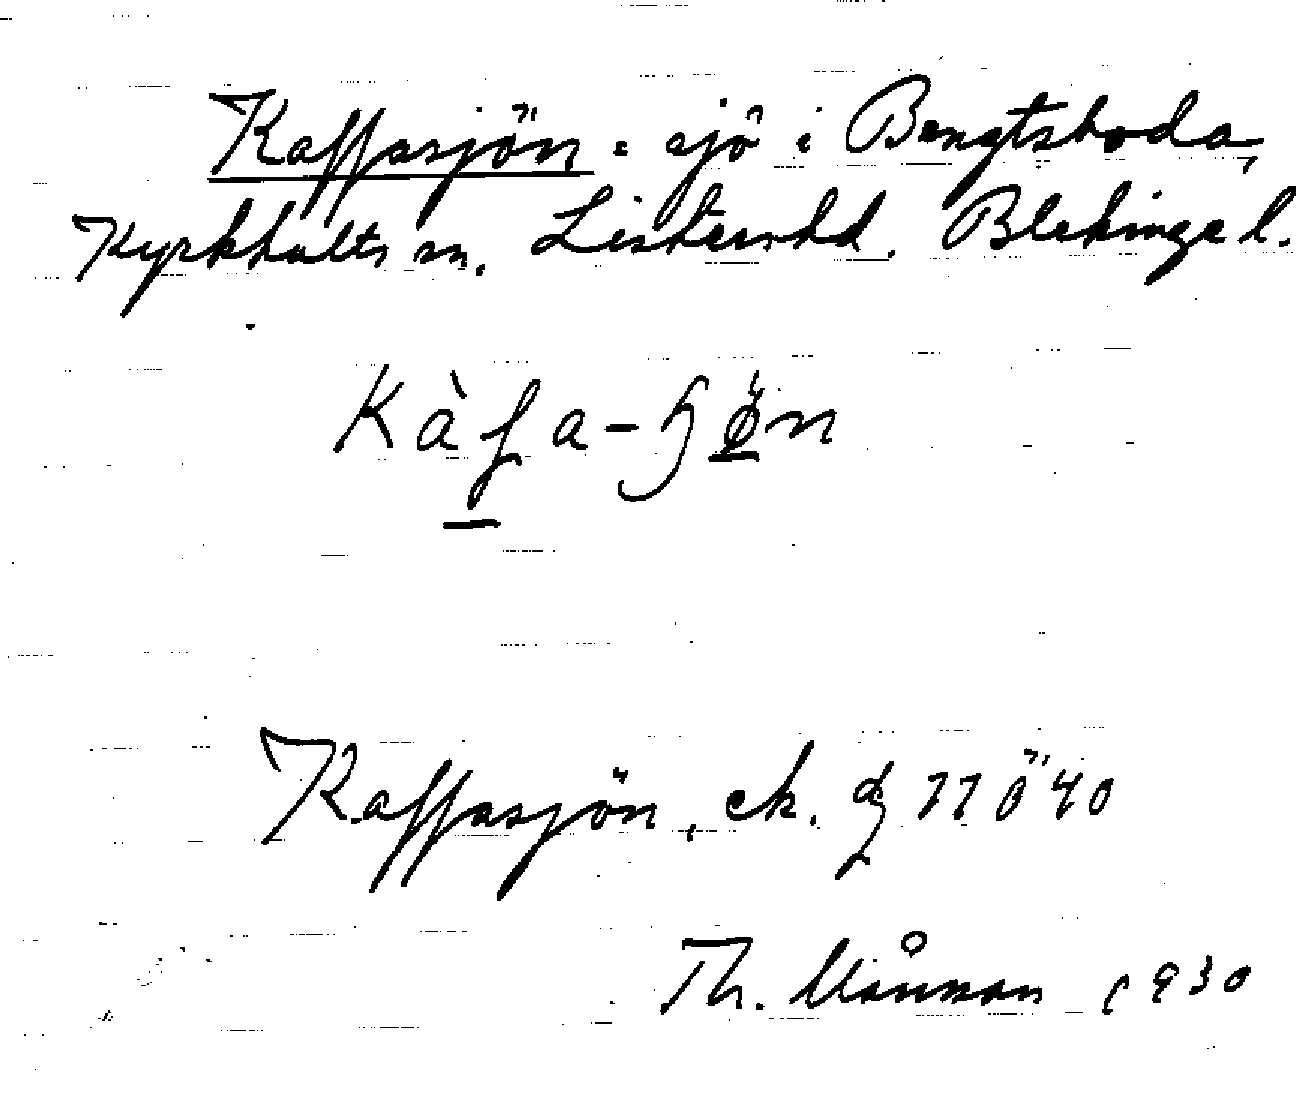 Kaffasjön: sjö i Bengtsboda,
Kyrkhults sn. Listers hd. Blekinge l.
Kàfa-ɧön
Kaffasjön, ek. 77 ö 40
Th. Månson 1930